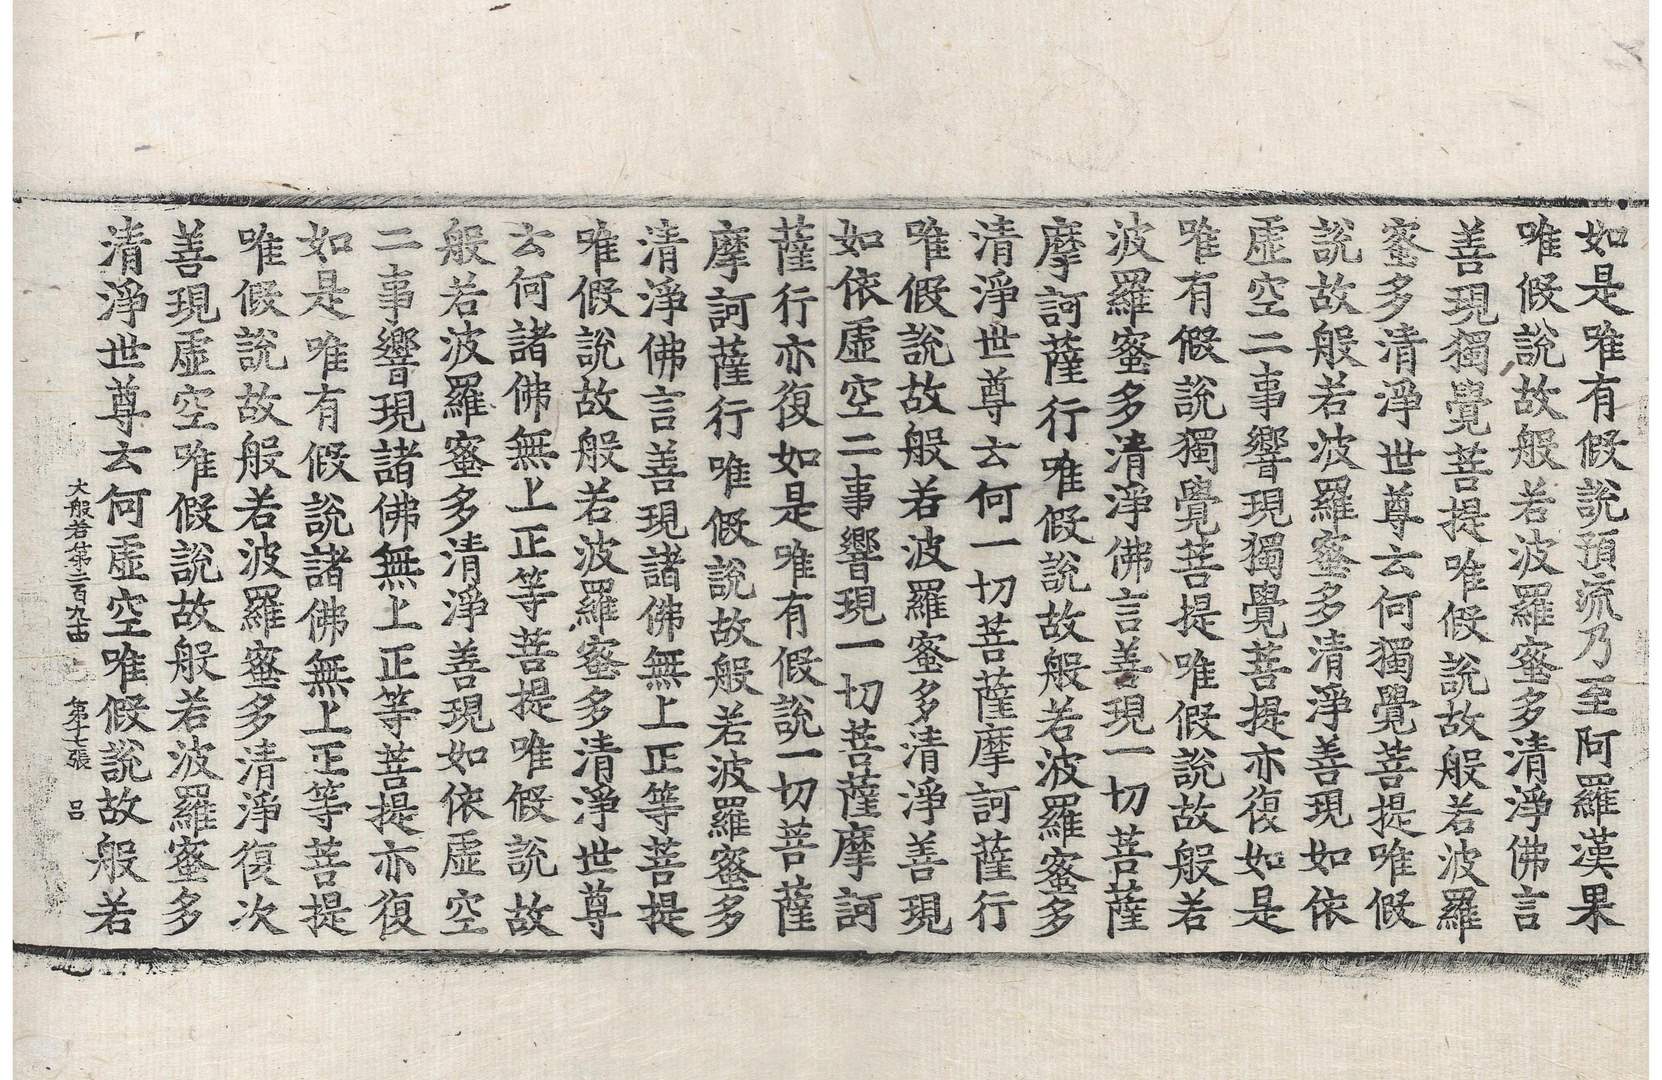 如是唯有假說預流乃至阿羅漢果
唯假說故般若波羅蜜多清淨佛言
善現獨覺菩提唯假說故般若波羅
蜜多清淨世尊云何獨覺菩提唯假
說故般若波羅蜜多清淨善現如依
虛空二事響現獨覺菩提亦復如是
唯有假說獨覺菩提唯假說故般若
波羅蜜多清淨佛言善現一切菩薩
摩訶薩行唯假說故般若波羅蜜多
清淨世尊云何一切菩薩摩訶薩行
唯假說故般若波羅蜜多清淨善現
如依虛空二事響現一切菩薩摩訶
薩行亦復如是唯有假說一切菩薩
摩訶薩行唯假說故般若波羅蜜多
清淨佛言善現諸佛無上正等菩提
唯假說故般若波羅蜜多清淨世尊
云何諸佛無上正等菩提唯假說故
般若波羅蜜多清淨善現如依虛空
二事響現諸佛無上正等菩提亦復
如是唯有假說諸佛無上正等菩提
唯假說故般若波羅蜜多清淨復次
善現虛空唯假說故般若波羅蜜多
清淨世尊云何虛空唯假說故般若
大般若第二百九十四 第十七張 呂